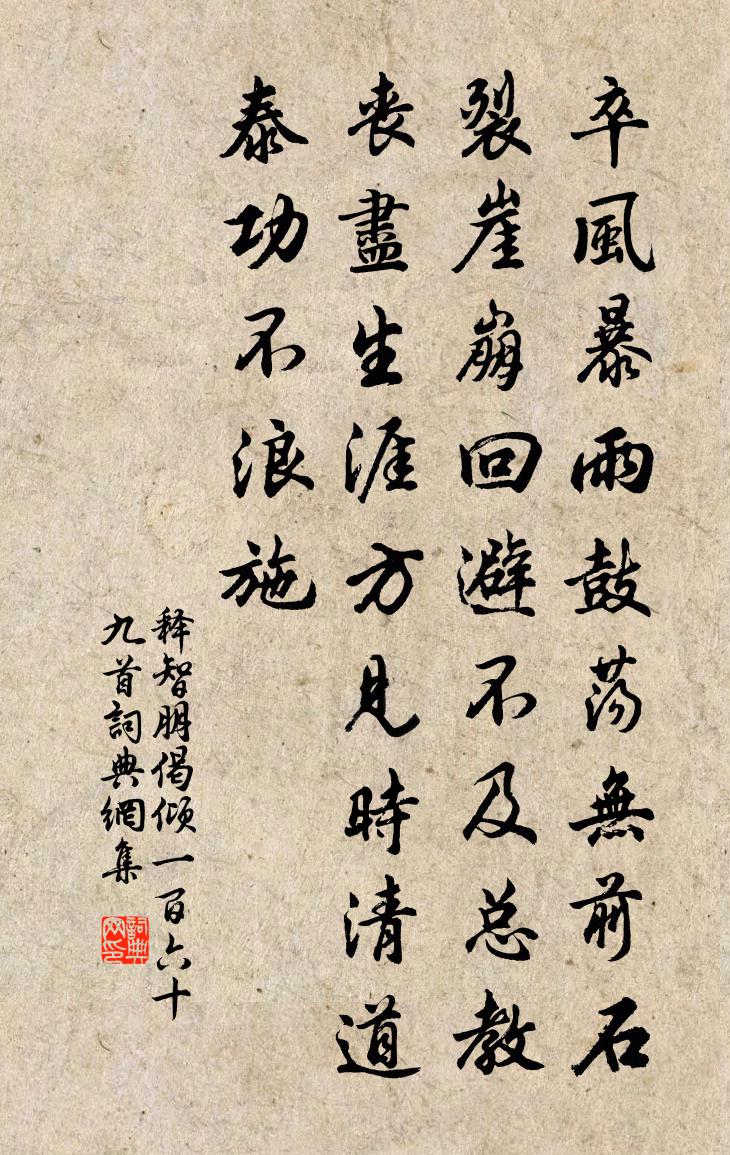 卒風暴雨鼓荡無前石
裂崖崩回避不及总教
丧盡生涯方見時清道
泰功不浪施
释智朋偈倾一百六十
九首詞典網集
詞典网印